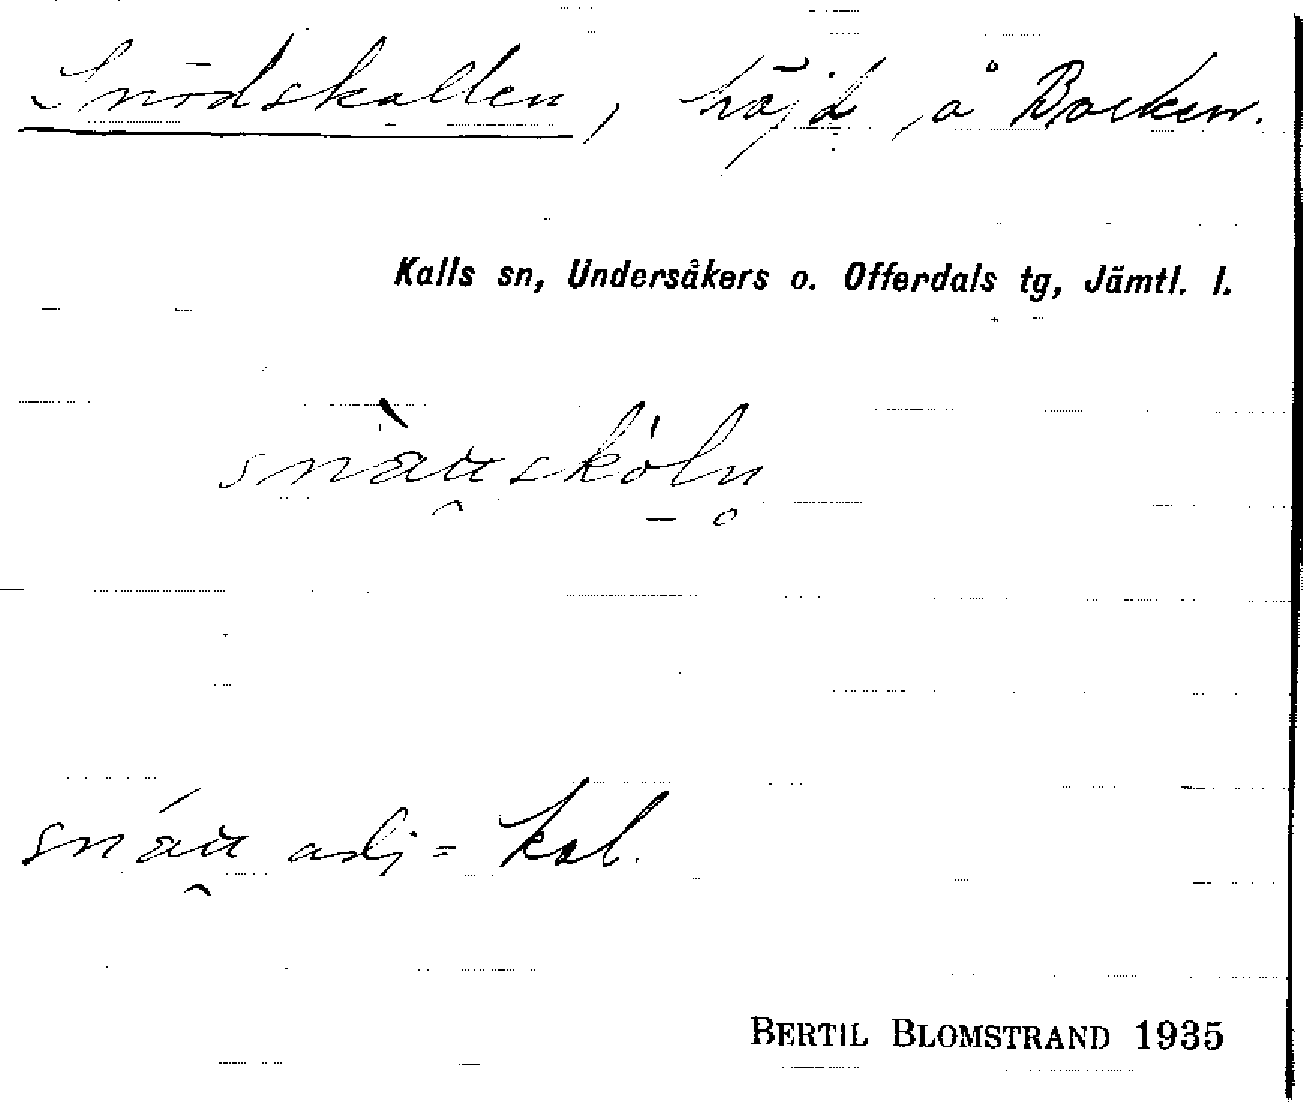 Snödskallen, höjd å Bocken.
Kalls sn, Undersåkers o. Offerdals tg, Jämtl. l.
snàusköln
snáu adj = kal.
BERTIL BLOMSTRAND 1935